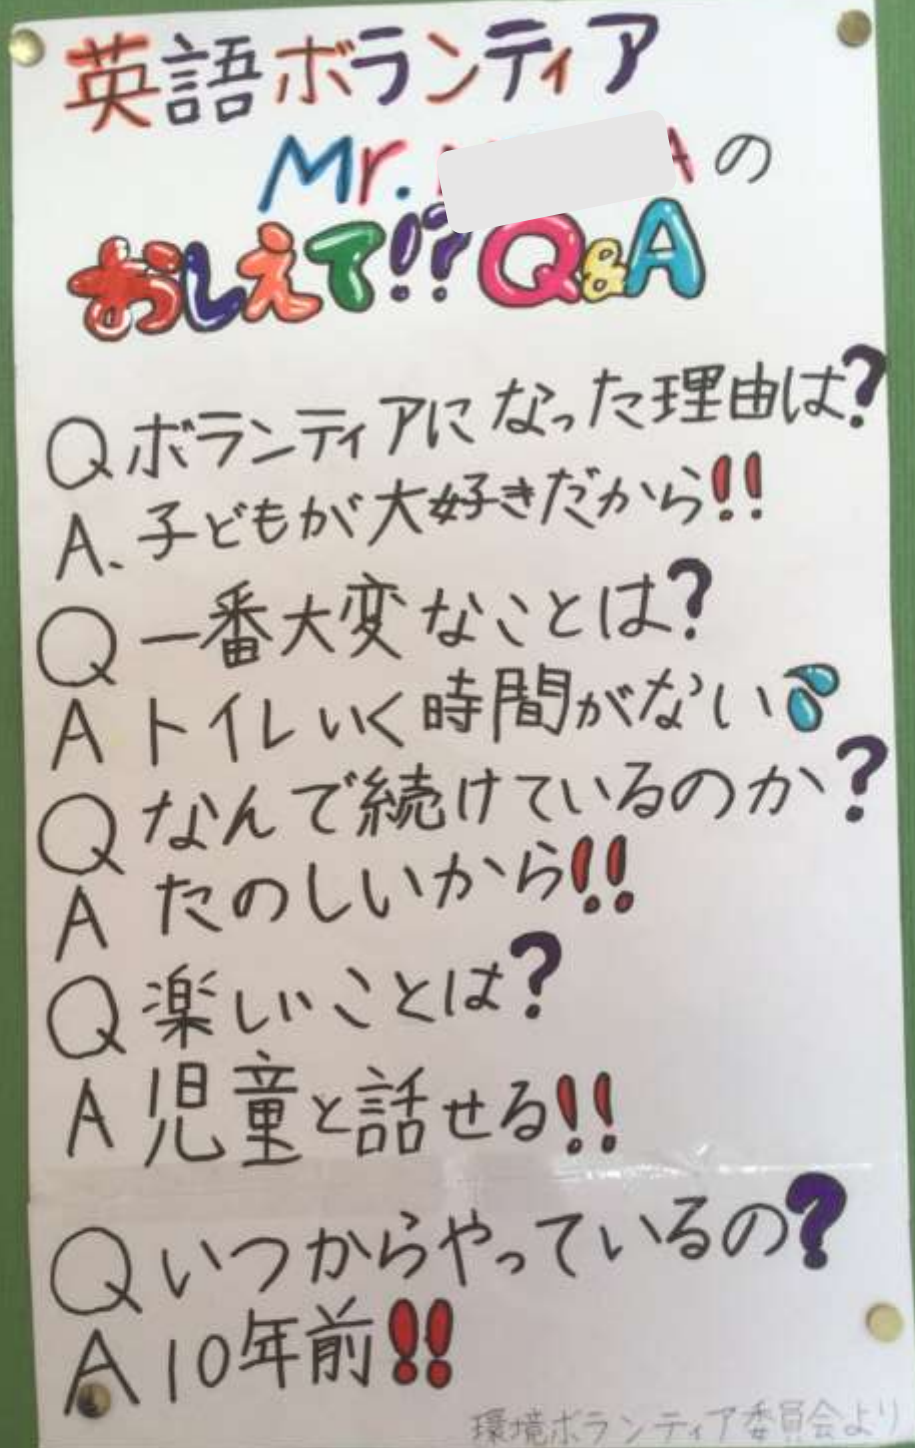 英語ボランティア
Mr. の
おしえて!?Q&A
Qボランティアになった理由は?
A、子どもが大好きだから!!
Q一番大変なことは?
Aトイレいく時間がない
Qなんで続けているのか?
Aたのしいから!!
Q楽しいことは?
A児童と話せる!!
Qいつからやっているの?
A10年前!!
環境ボランティア委員会より